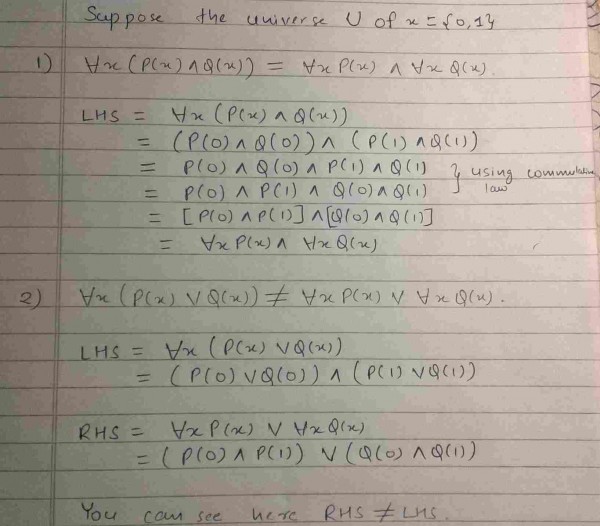 Suppose the universe U of x = {0,1}
1) ∀x (P(x) ∧ Q(x)) = ∀x P(x) ∧ ∀x Q(x).
LHS = ∀x (P(x) ∧ Q(x))
= (P(0) ∧ Q(0)) ∧ (P(1) ∧ Q(1))
= P(0) ∧ Q(0) ∧ P(1) ∧ Q(1) } using commutative
= P(0) ∧ P(1) ∧ Q(0) ∧ Q(1) law
= [P(0) ∧ P(1)] ∧ [Q(0) ∧ Q(1)]
= ∀x P(x) ∧ ∀x Q(x)
2) ∀x (P(x) ∨ Q(x)) ≠ ∀x P(x) ∨ ∀x Q(x).
LHS = ∀x (P(x) ∨ Q(x))
= (P(0) ∨ Q(0)) ∧ (P(1) ∨ Q(1))
RHS = ∀x P(x) ∨ ∀x Q(x)
= (P(0) ∧ P(1)) ∨ (Q(0) ∧ Q(1))
You can see here RHS ≠ LHS.